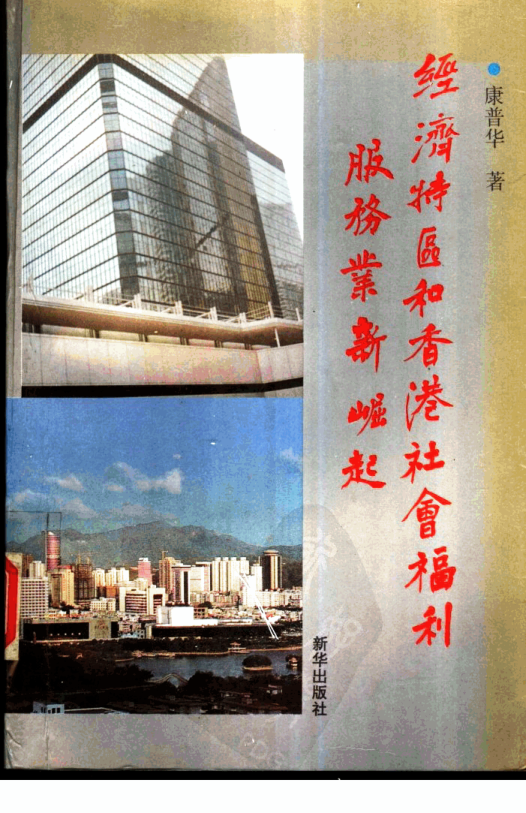 康普华 著
經濟特區和香港社會福利
服務業新崛起
新华出版社